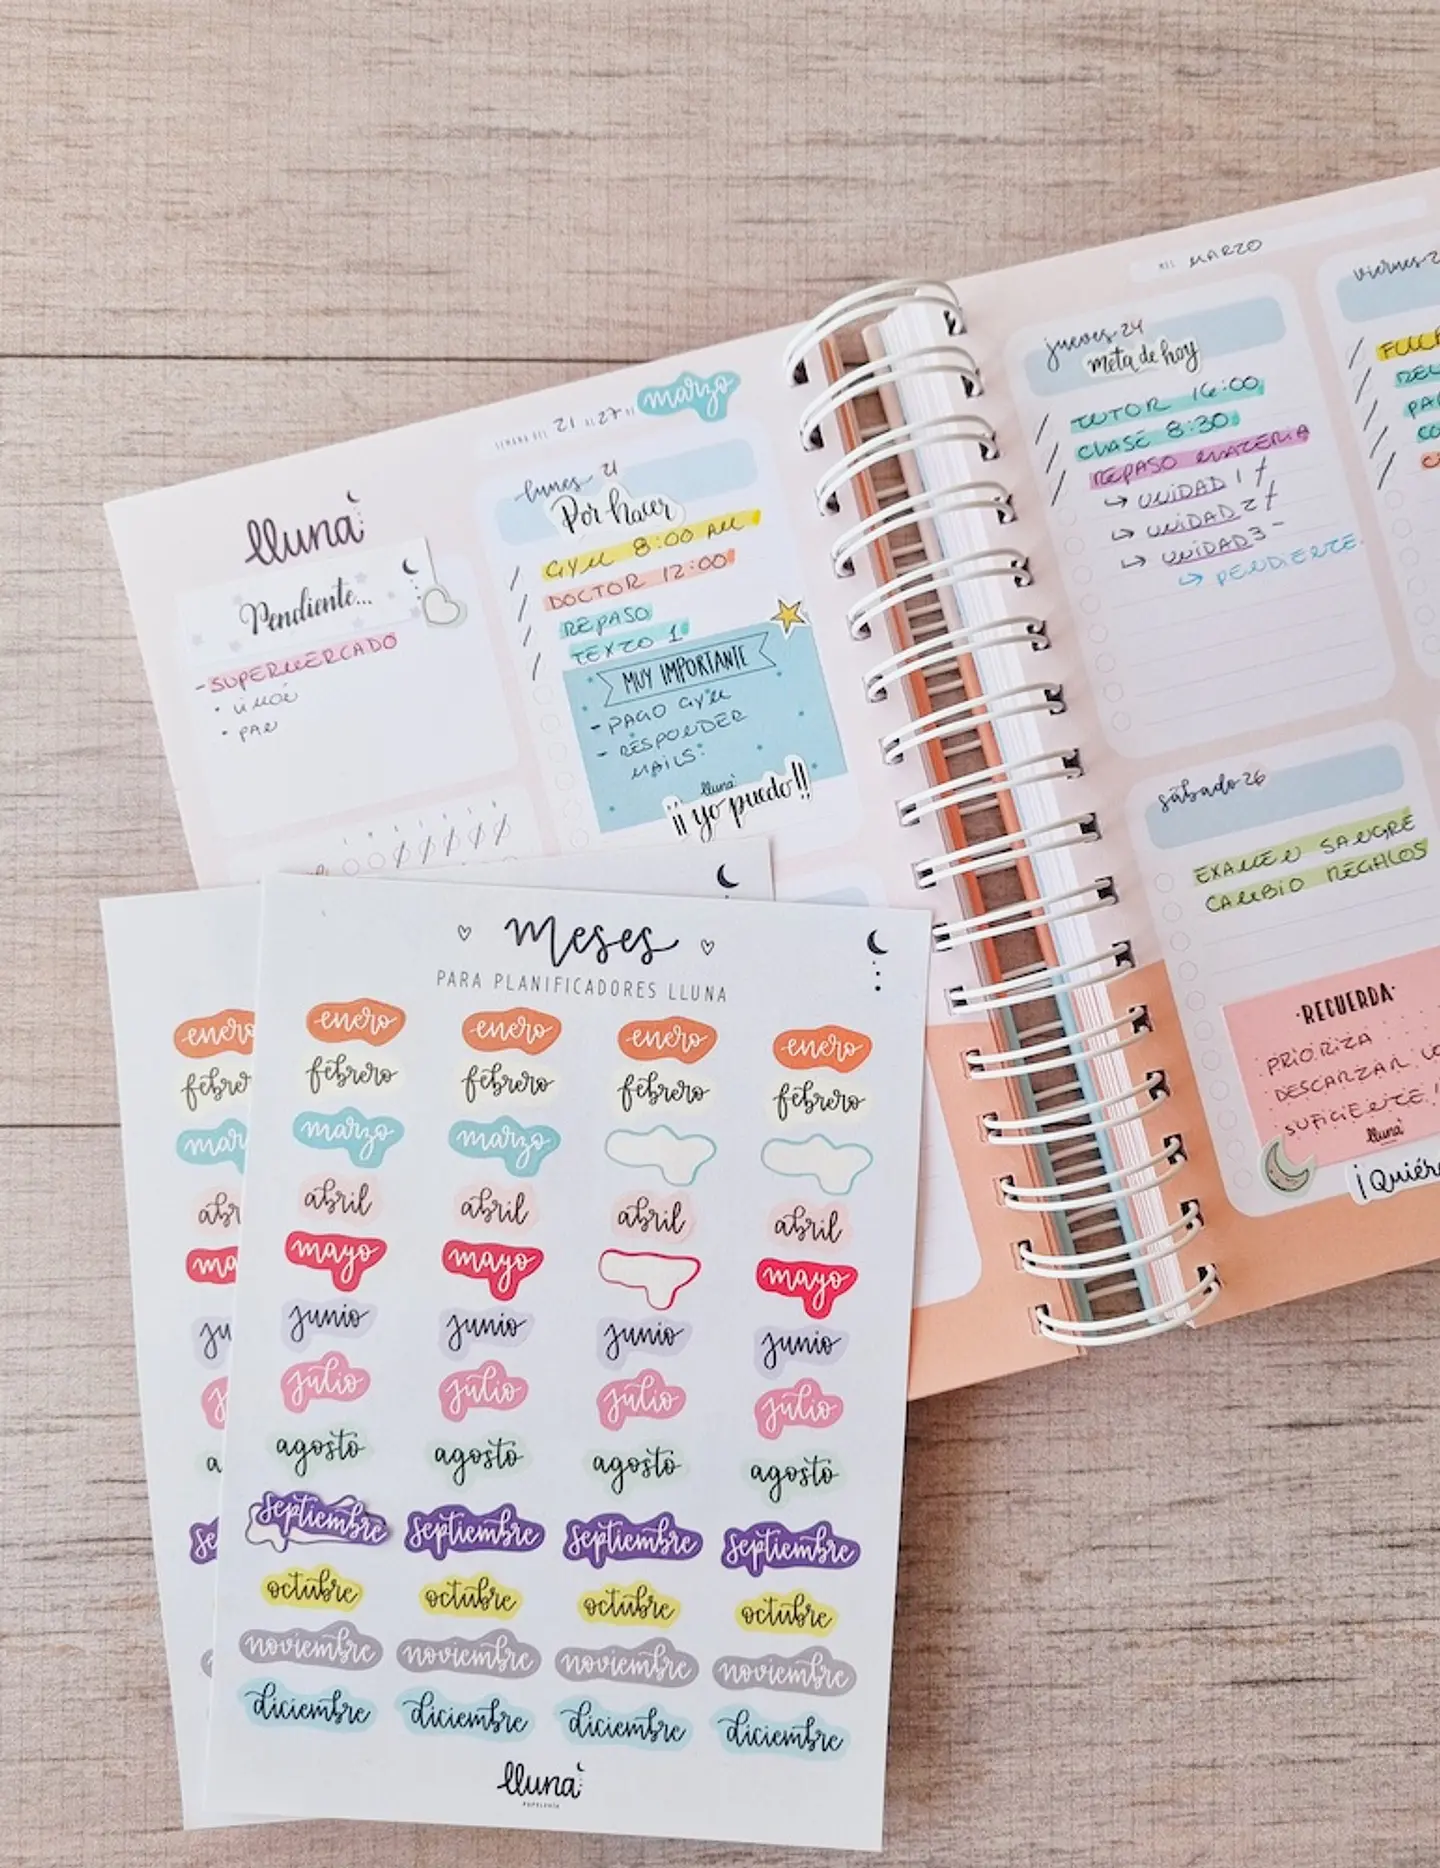 lluna
Pendiente...
- SUPERMERCADO
• PAN
SEMANA DEL 21 AL 27 DE marzo
lunes 21
Por hacer
GYM 8:00 AM
DOCTOR 12:00
REPASO
TEXTO 1
MUY IMPORTANTE
- PAGO GYM
- RESPONDER
MAILS.
lluna
¡¡ yo puedo !!
MES MARZO
jueves 24
meta de hoy
TUTOR 16:00
CLASE 8:30
REPASO MATERIA
↳ UNIDAD 1
↳ UNIDAD 2
↳ UNIDAD 3 -
↳ PENDIENTE.
viernes
sábado 26
EXAMEN SANGRE
CAMBIO REGALOS
·RECUERDA·
PRIORIZA
DESCANZAR LO
SUFICIENTE!
lluna
meses
PARA PLANIFICADORES LLUNA
enero enero enero enero enero
febrero febrero febrero febrero
marzo marzo
abril abril abril abril
mayo mayo mayo
junio junio junio junio
julio julio julio julio
agosto agosto agosto agosto
septiembre septiembre septiembre septiembre
octubre octubre octubre octubre
noviembre noviembre noviembre noviembre
diciembre diciembre diciembre diciembre
lluna
PAPELERÍA